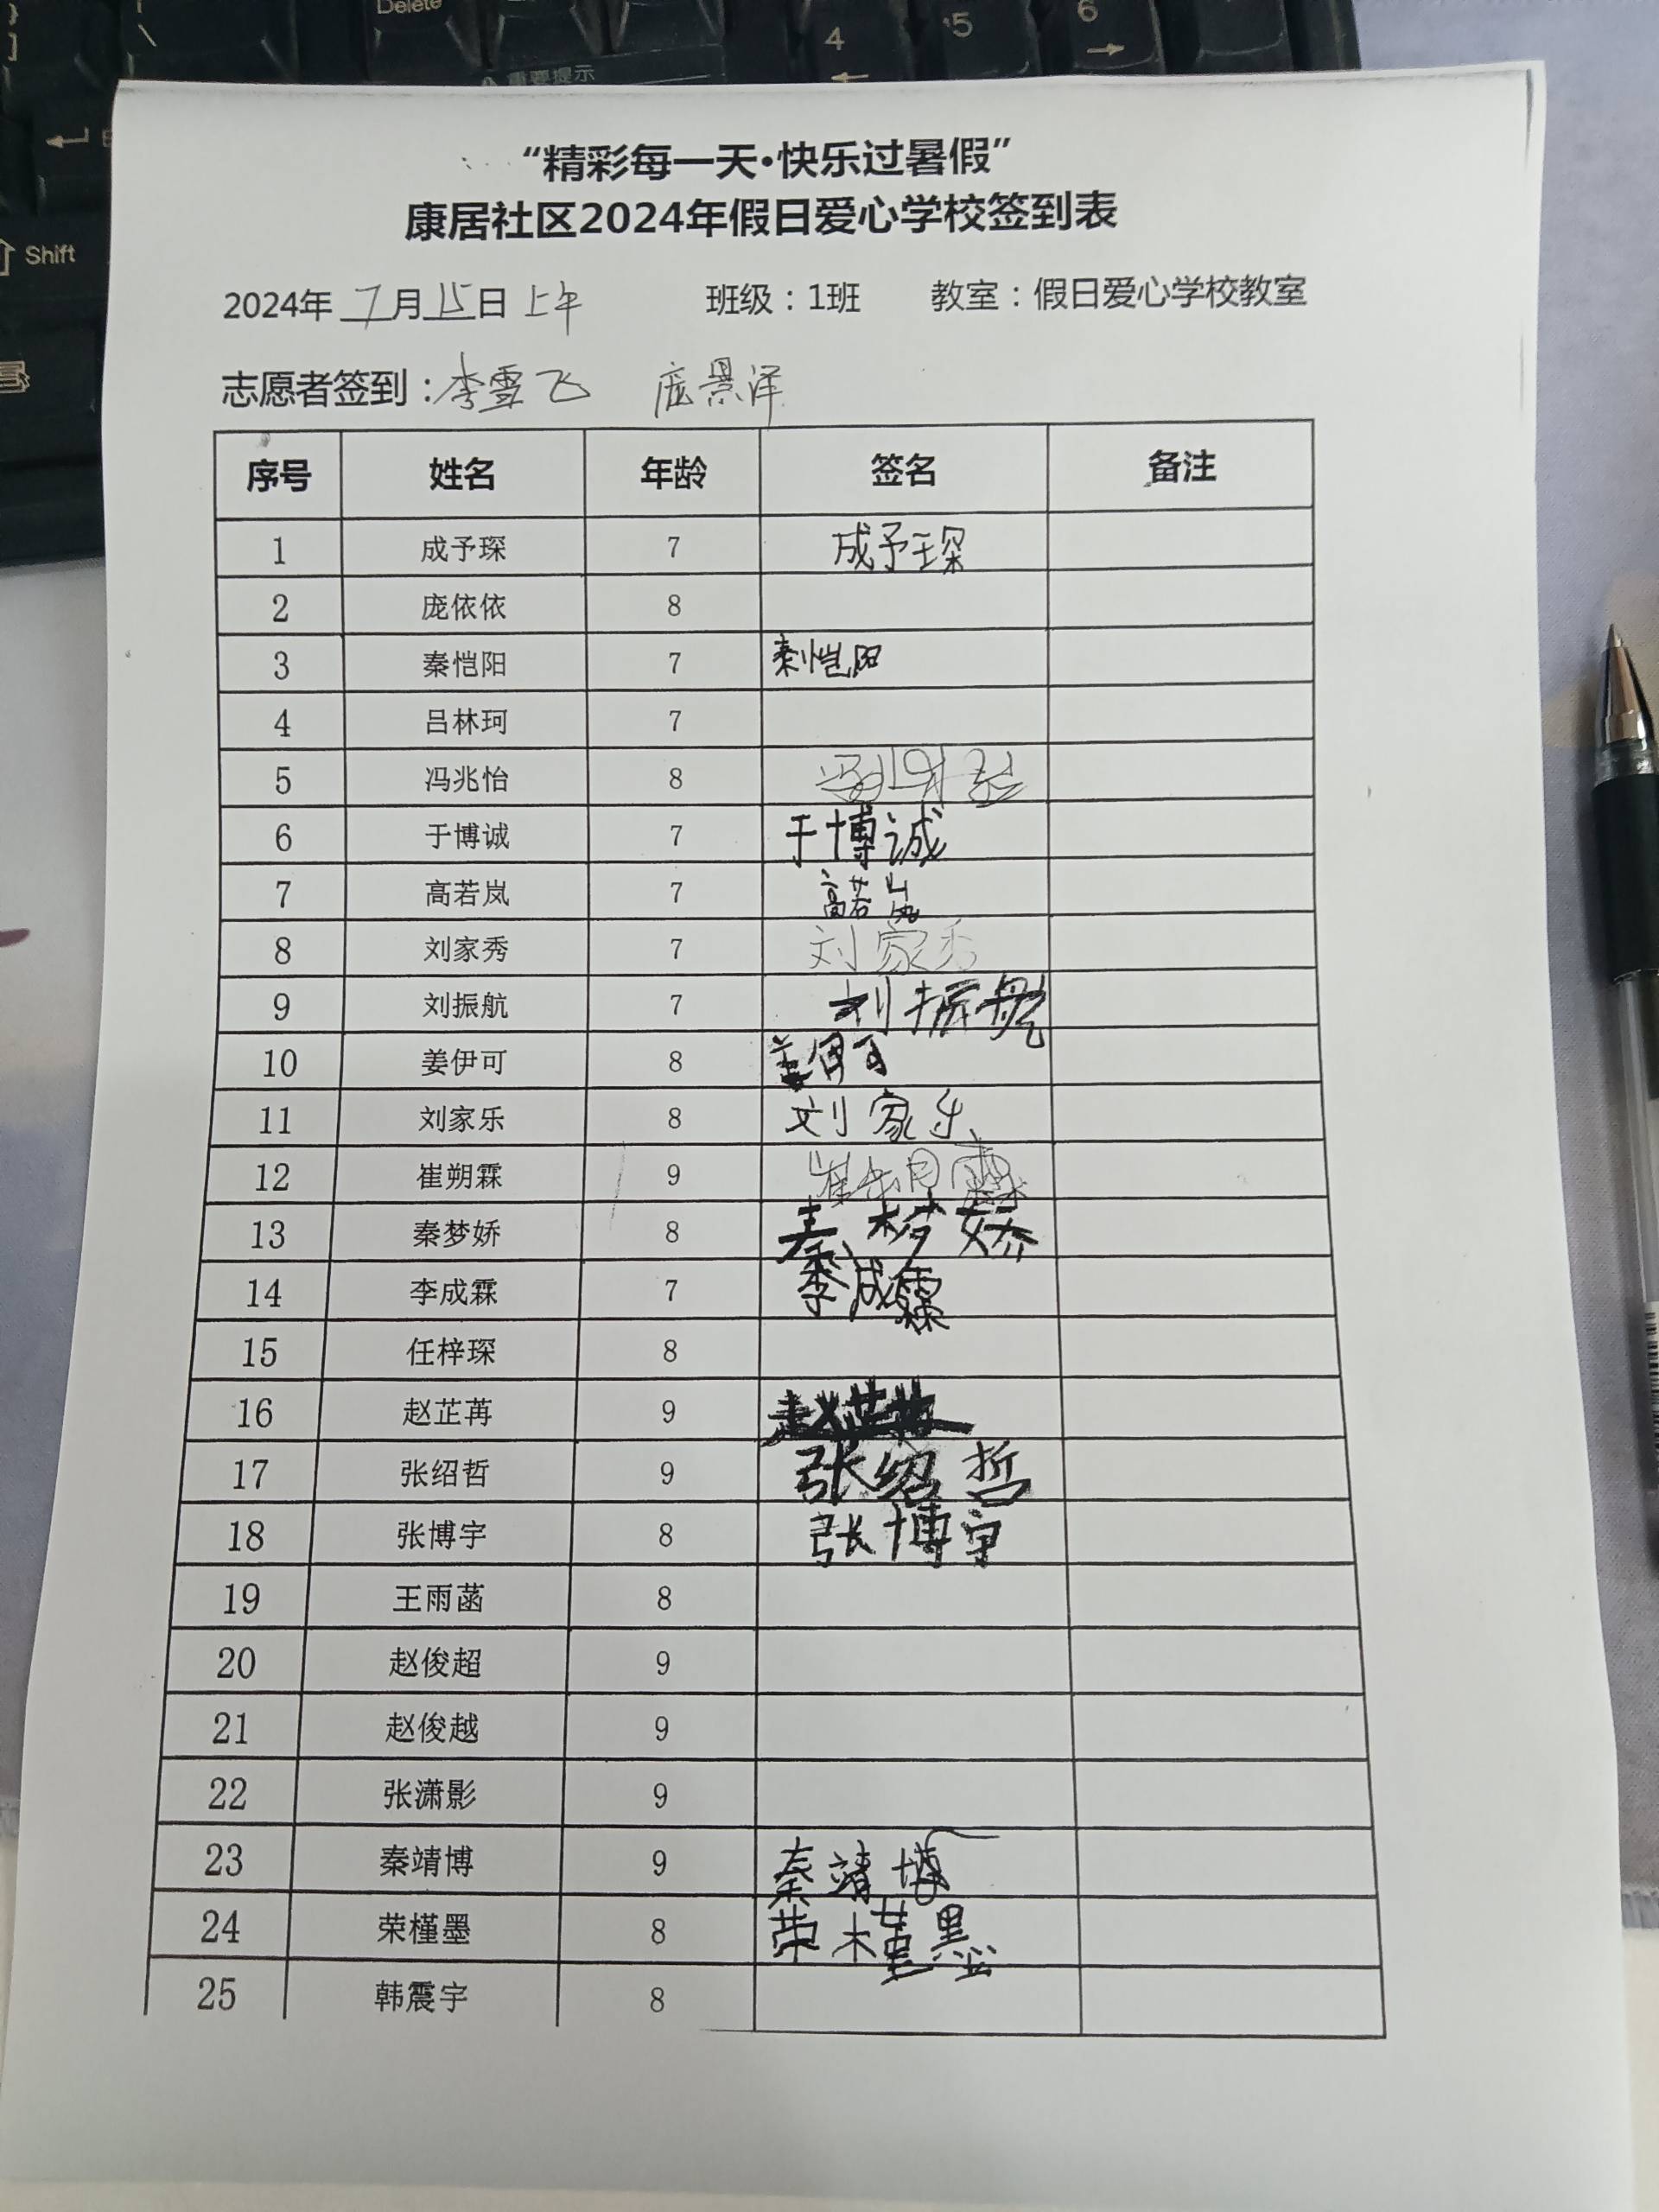 Delete
\
4
5
6
重要提示
Shift
“精彩每一天·快乐过暑假”
康居社区2024年假日爱心学校签到表
2024年 7月15日 上午 班级：1班 教室：假日爱心学校教室
志愿者签到：李雪飞 庞景泽
序号 姓名 年龄 签名 备注
1 成予琛 7 成予琛
2 庞依依 8
3 秦恺阳 7 秦恺阳
4 吕林珂 7
5 冯兆怡 8
6 于博诚 7 于博诚
7 高若岚 7 高若岚
8 刘家秀 7 刘家秀
9 刘振航 7 刘振航
10 姜伊可 8 姜伊可
11 刘家乐 8 刘家乐
12 崔朔霖 9 崔朔霖
13 秦梦娇 8 秦梦娇
14 李成霖 7 李成霖
15 任梓琛 8
16 赵芷苒 9 赵芷苒
17 张绍哲 9 张绍哲
18 张博宇 8 张博宇
19 王雨菡 8
20 赵俊超 9
21 赵俊越 9
22 张潇影 9
23 秦靖博 9 秦靖博
24 荣槿墨 8 荣槿墨
25 韩震宇 8